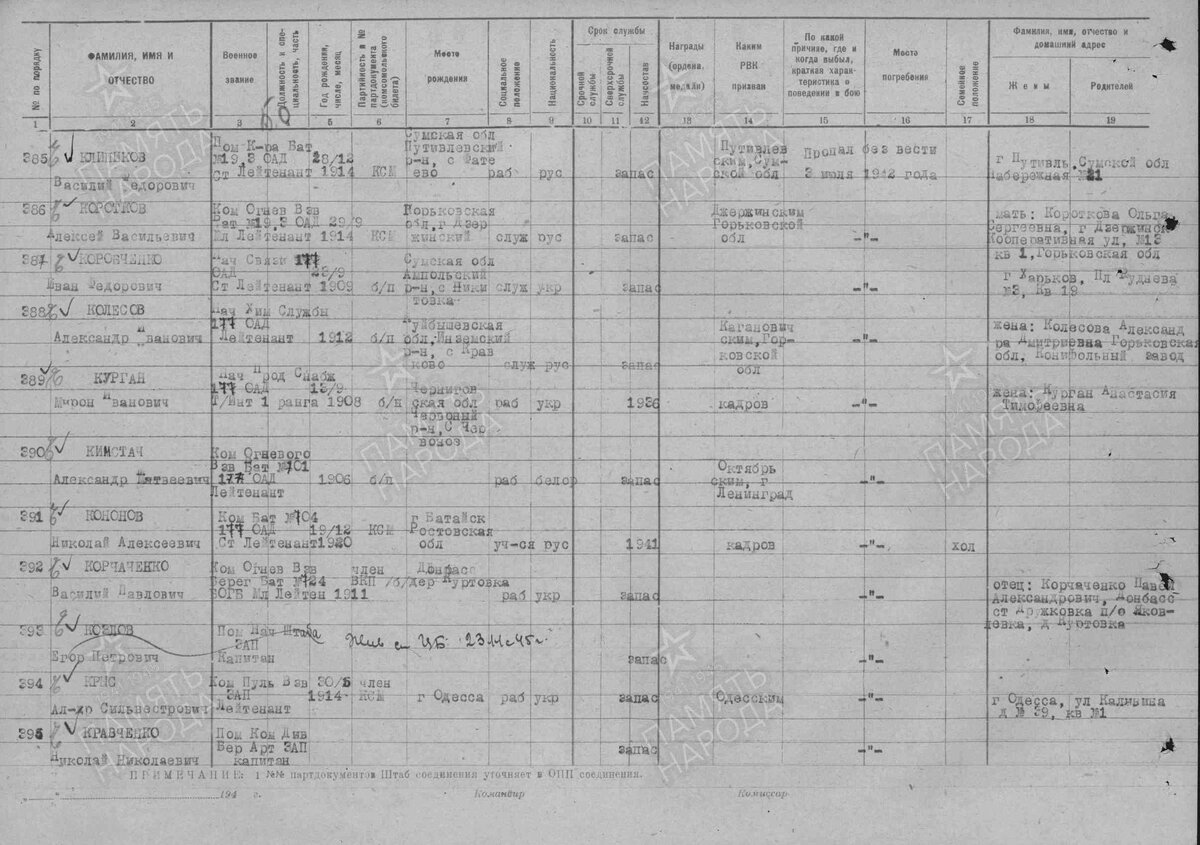 № по порядку
ФАМИЛИЯ, ИМЯ И ОТЧЕСТВО
Военное звание
Должность и специальность, часть
Год рождения, число, месяц
Партийность и № партдокумента (комсомольского билета)
Место рождения
Социальное положение
Национальность
Срок службы
Срочной службы
Сверхсрочной службы
Начсостав
Награды (ордена, медали)
Каким РВК призван
По какой причине, где и когда выбыл, краткая характеристика о поведении в бою
Место погребения
Семейное положение
Фамилия, имя, отчество и домашний адрес
Жены
Родителей
1 2 3 5 6 7 8 9 10 11 12 13 14 15 16 17 18 19
385 КЛИНУКОВ
Василий Федорович
Пом К-ра Бат
№19,3 ОАД 28/12
Ст Лейтенант 1914 КСМ
Сумская обл
Путивлевский
р-н, с Фате
ево раб рус запас
Путивлев
ским,Сум-
ской обл
Пропал без вести
3 июля 1942 года
г Путивль,Сумской обл
Набережная №21
386 КОРОТКОВ
Алексей Васильевич
Ком Огнев Взв
Бат №19,3 ОАД 29/9
Мл Лейтенант 1914 КСМ
Горьковская
обл,г Дзер
жинский служ рус запас
Джержинским
Горьковской
обл -"-
мать: Короткова Ольга
Сергеевна, г Дзержинск
Кооперативная ул, №13
кв 1,Горьковская обл
387 КОРОБЧЕНКО
Иван Федорович
Нач Связи 177
ОАД 23/9
Ст Лейтенант 1909 б/п
Сумская обл
Ампольский
р-н,с Ники
товка служ укр запас -"-
г Харьков, Пл Руднева
№3, Кв 19
388 КОЛЕСОВ
Александр Иванович
Нач Хим Службы
177 ОАД
Лейтенант 1912 б/п
Куйбышевская
обл,Инземский
р-н, с Крав
ково служ рус запас
Каганович
ским,Гор-
ковской
обл -"-
жена: Колесова Александ
ра Дмитриевна Горьковская
обл, Конифольный завод
389 КУРГАН
Мирон Иванович
Нач Прод Снабж
177 ОАД 13/9
Т/Инт 1 ранга 1908 б/п
Чернигов
ская обл
Червоный
р-н,С Чер
воноз раб укр 1936 кадров -"-
жена: Курган Анастасия
Тимофеевна
390 КИМСТАЧ
Александр Матвеевич
Ком Огневого
Взв Бат №701
177 ОАД 1906 б/п
Лейтенант раб белор запас
Октябрь
ским, г
Ленинград -"-
391 КОНОНОВ
Николай Алексеевич
Ком Бат №704
177 ОАД 19/12 КСМ
Ст Лейтенант1920
г Батайск
Ростовская
обл уч-ся рус 1941 кадров -"- хол
392 КОРЧАЧЕНКО
Василий Павлович
Ком Огнев Взв член
Берег Бат №724 ВКП /б/
БОГБ Мл Лейтен 1911
Донбасс
дер Куртовка
раб укр запас -"-
отец: Корчаченко Павел
Александрович, Донбасс
ст Дружковка п/о Яков-
левка, д Куртовка
393 КОЗЛОВ
Егор Петрович
Пом Нач Штаба
ЗАП
Капитан
Жив см ЦБ 23.11.45г.
запас -"-
394 КРИС
Ал-др Сильвестрович
Ком Пуль Взв 30/5 член
ЗАП 1914 КСМ
Лейтенант
г Одесса раб укр запас Одесским -"-
г Одесса, ул Калинина
д № 39, кв №1
395 КРАВЧЕНКО
Николай Николаевич
Пом Ком Див
Бер Арт ЗАП
капитан
запас -"-
ПРИМЕЧАНИЕ: 1 №№ партдокументов Штаб соединения уточняет в ОПП соединения.
"___"___194 г. Командир Комиссар
ПАМЯТЬ НАРОДА